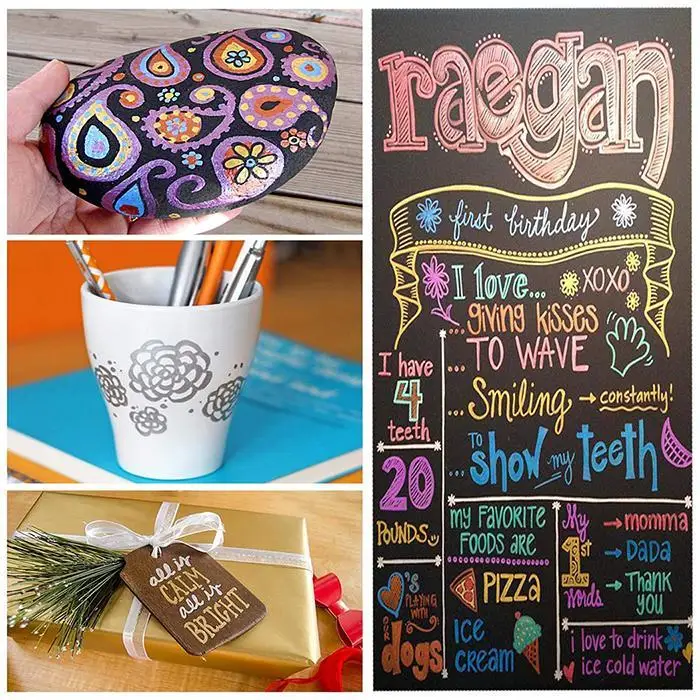 raegan
first birthday
I love...
XOXO
... giving kisses
... TO WAVE
... Smiling → constantly!
... TO show my teeth
I have
4
teeth
20
POUNDS
♥'s
PLAYING
WITH
dogs
my FAVORITE
FOODS ARE
PIZZA
ICE
CREAM
My
1st
Words
→ momma
→ DADA
→ THANK
YOU
i love to drink
ice cold water
all is
CALM
all is
BRIGHT